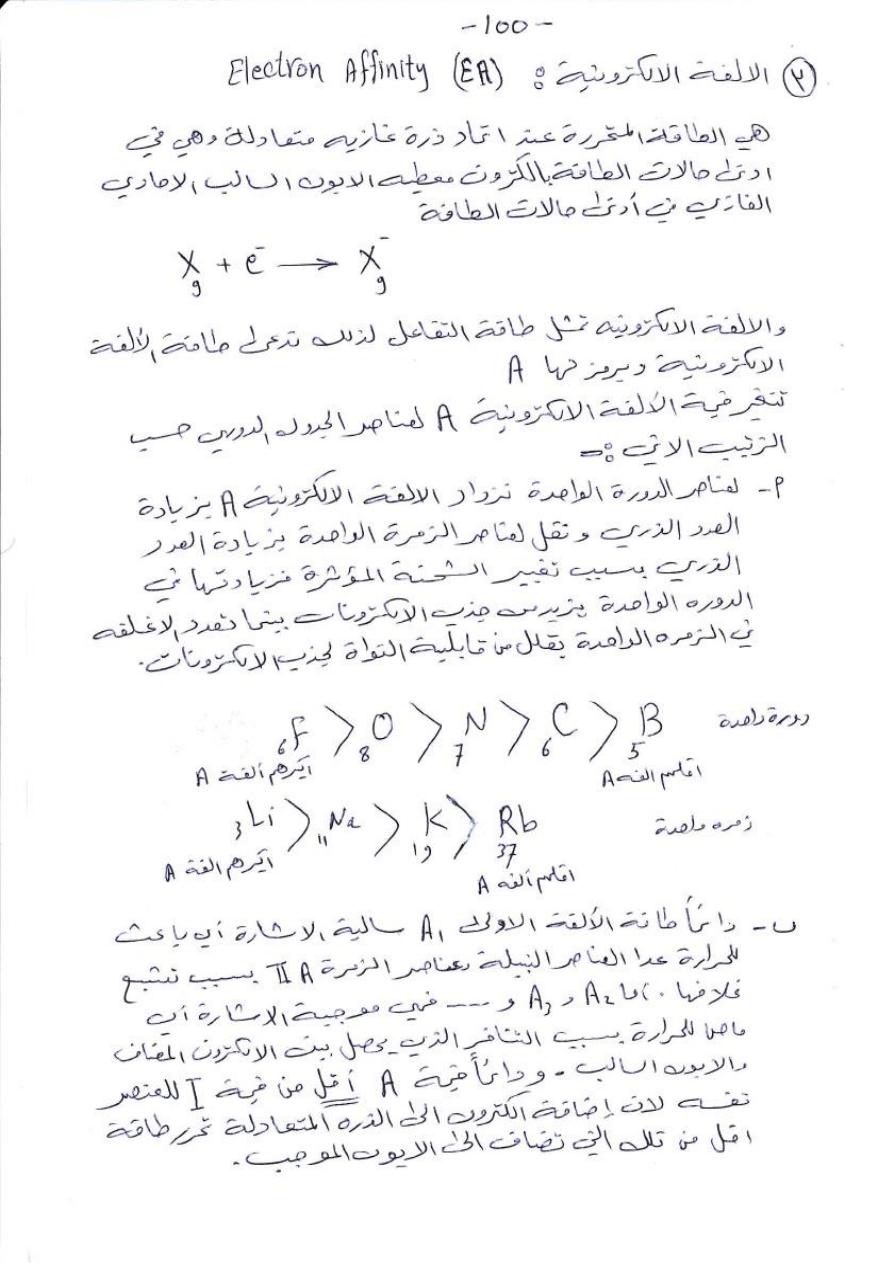 -100-
٢ الالفة الالكترونية : Electron Affinity (EA)
هي الطاقة المتحررة عند اتحاد ذرة غازيه متعادلة وهي في
ادنى حالات الطاقة بالكترون معطيه الايون السالب الاحادي
الغازي في أدنى حالات الطاقة
X g + e⁻ → X⁻ g
والالفة الالكترونيه تمثل طاقة التفاعل لذلك تدعى طاقة الألفة
الالكترونية ويرمز لها A
تتغير قيمة الألفة الالكترونية A لعناصر الجدول الدوري حسب
الترتيب الاتي :-
أ- لعناصر الدورة الواحدة تزداد الالفة الالكترونية A بزيادة
العدد الذري وتقل لعناصر الزمرة الواحدة بزيادة العدد
الذري بسبب تغيير الشحنة المؤثرة فزيادتها في
الدوره الواحدة يزيد من جذب الالكترونات بينما تعدد الاغلفه
في الزمره الواحدة يقلل من قابلية النواة لجذب الالكترونات.
دورة واحدة ₅B < ₆C < ₇N < ₈O < ₆F
اقلهم الفه A أكبرهم ألفة A
زمره واحدة ₃₇Rb < ₁₉K < ₁₁Na < ₃Li
اقلهم ألفه A أكبرهم الفة A
ب- دائماً طاقة الألفة الاولى A₁ سالبة الاشارة أي باعث
للحرارة عدا العناصر النبيلة وعناصر الزمرة IIA بسبب تشبع
غلافها. اما A₂ و A₃ و ---- فهي موجبة الاشارة أي
ماص للحرارة بسبب التنافر الذي يحصل بين الالكترون المضاف
والايون السالب. ودائماً قيمة A أقل من قيمة I للعنصر
نفسه لان إضافة الكترون الى الذره المتعادلة تحرر طاقة
اقل من تلك التي تضاف الى الايون الموجب.